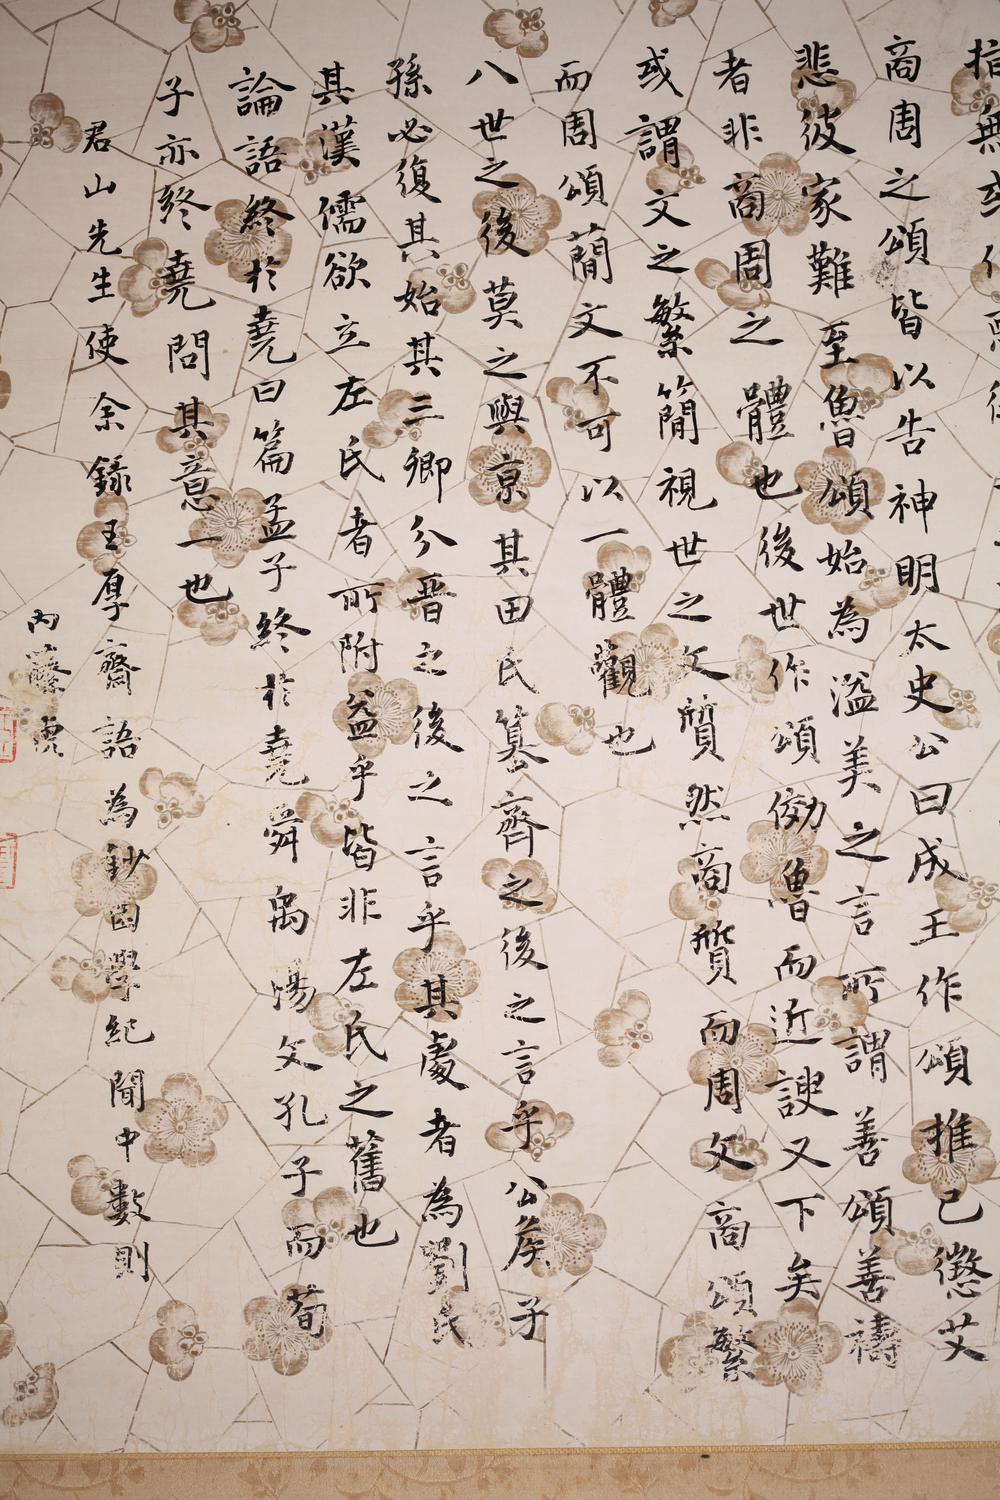 商周之頌皆以告神明太史公曰成王作頌推己懲艾
悲彼家難至魯頌始為溢美之言所謂善頌善禱
者非商周之體也後世作頌傚魯而近諛又下矣
或謂文之繁簡視世之文質然商質而周文商頌繁
而周頌蕳文不可以一體觀也
八世之後莫之與京其田氏篡齊之後之言乎公矦子
孫必復其始其三卿分晋之後之言乎其處者為劉氏
其漢儒欲立左氏者所附益乎皆非左氏之舊也
論語終於堯曰篇孟子終於堯舜禹湯文孔子而荀
子亦終堯問其意一也
君山先生使余録王厚齋語為鈔困學紀聞中數則
內藤虎